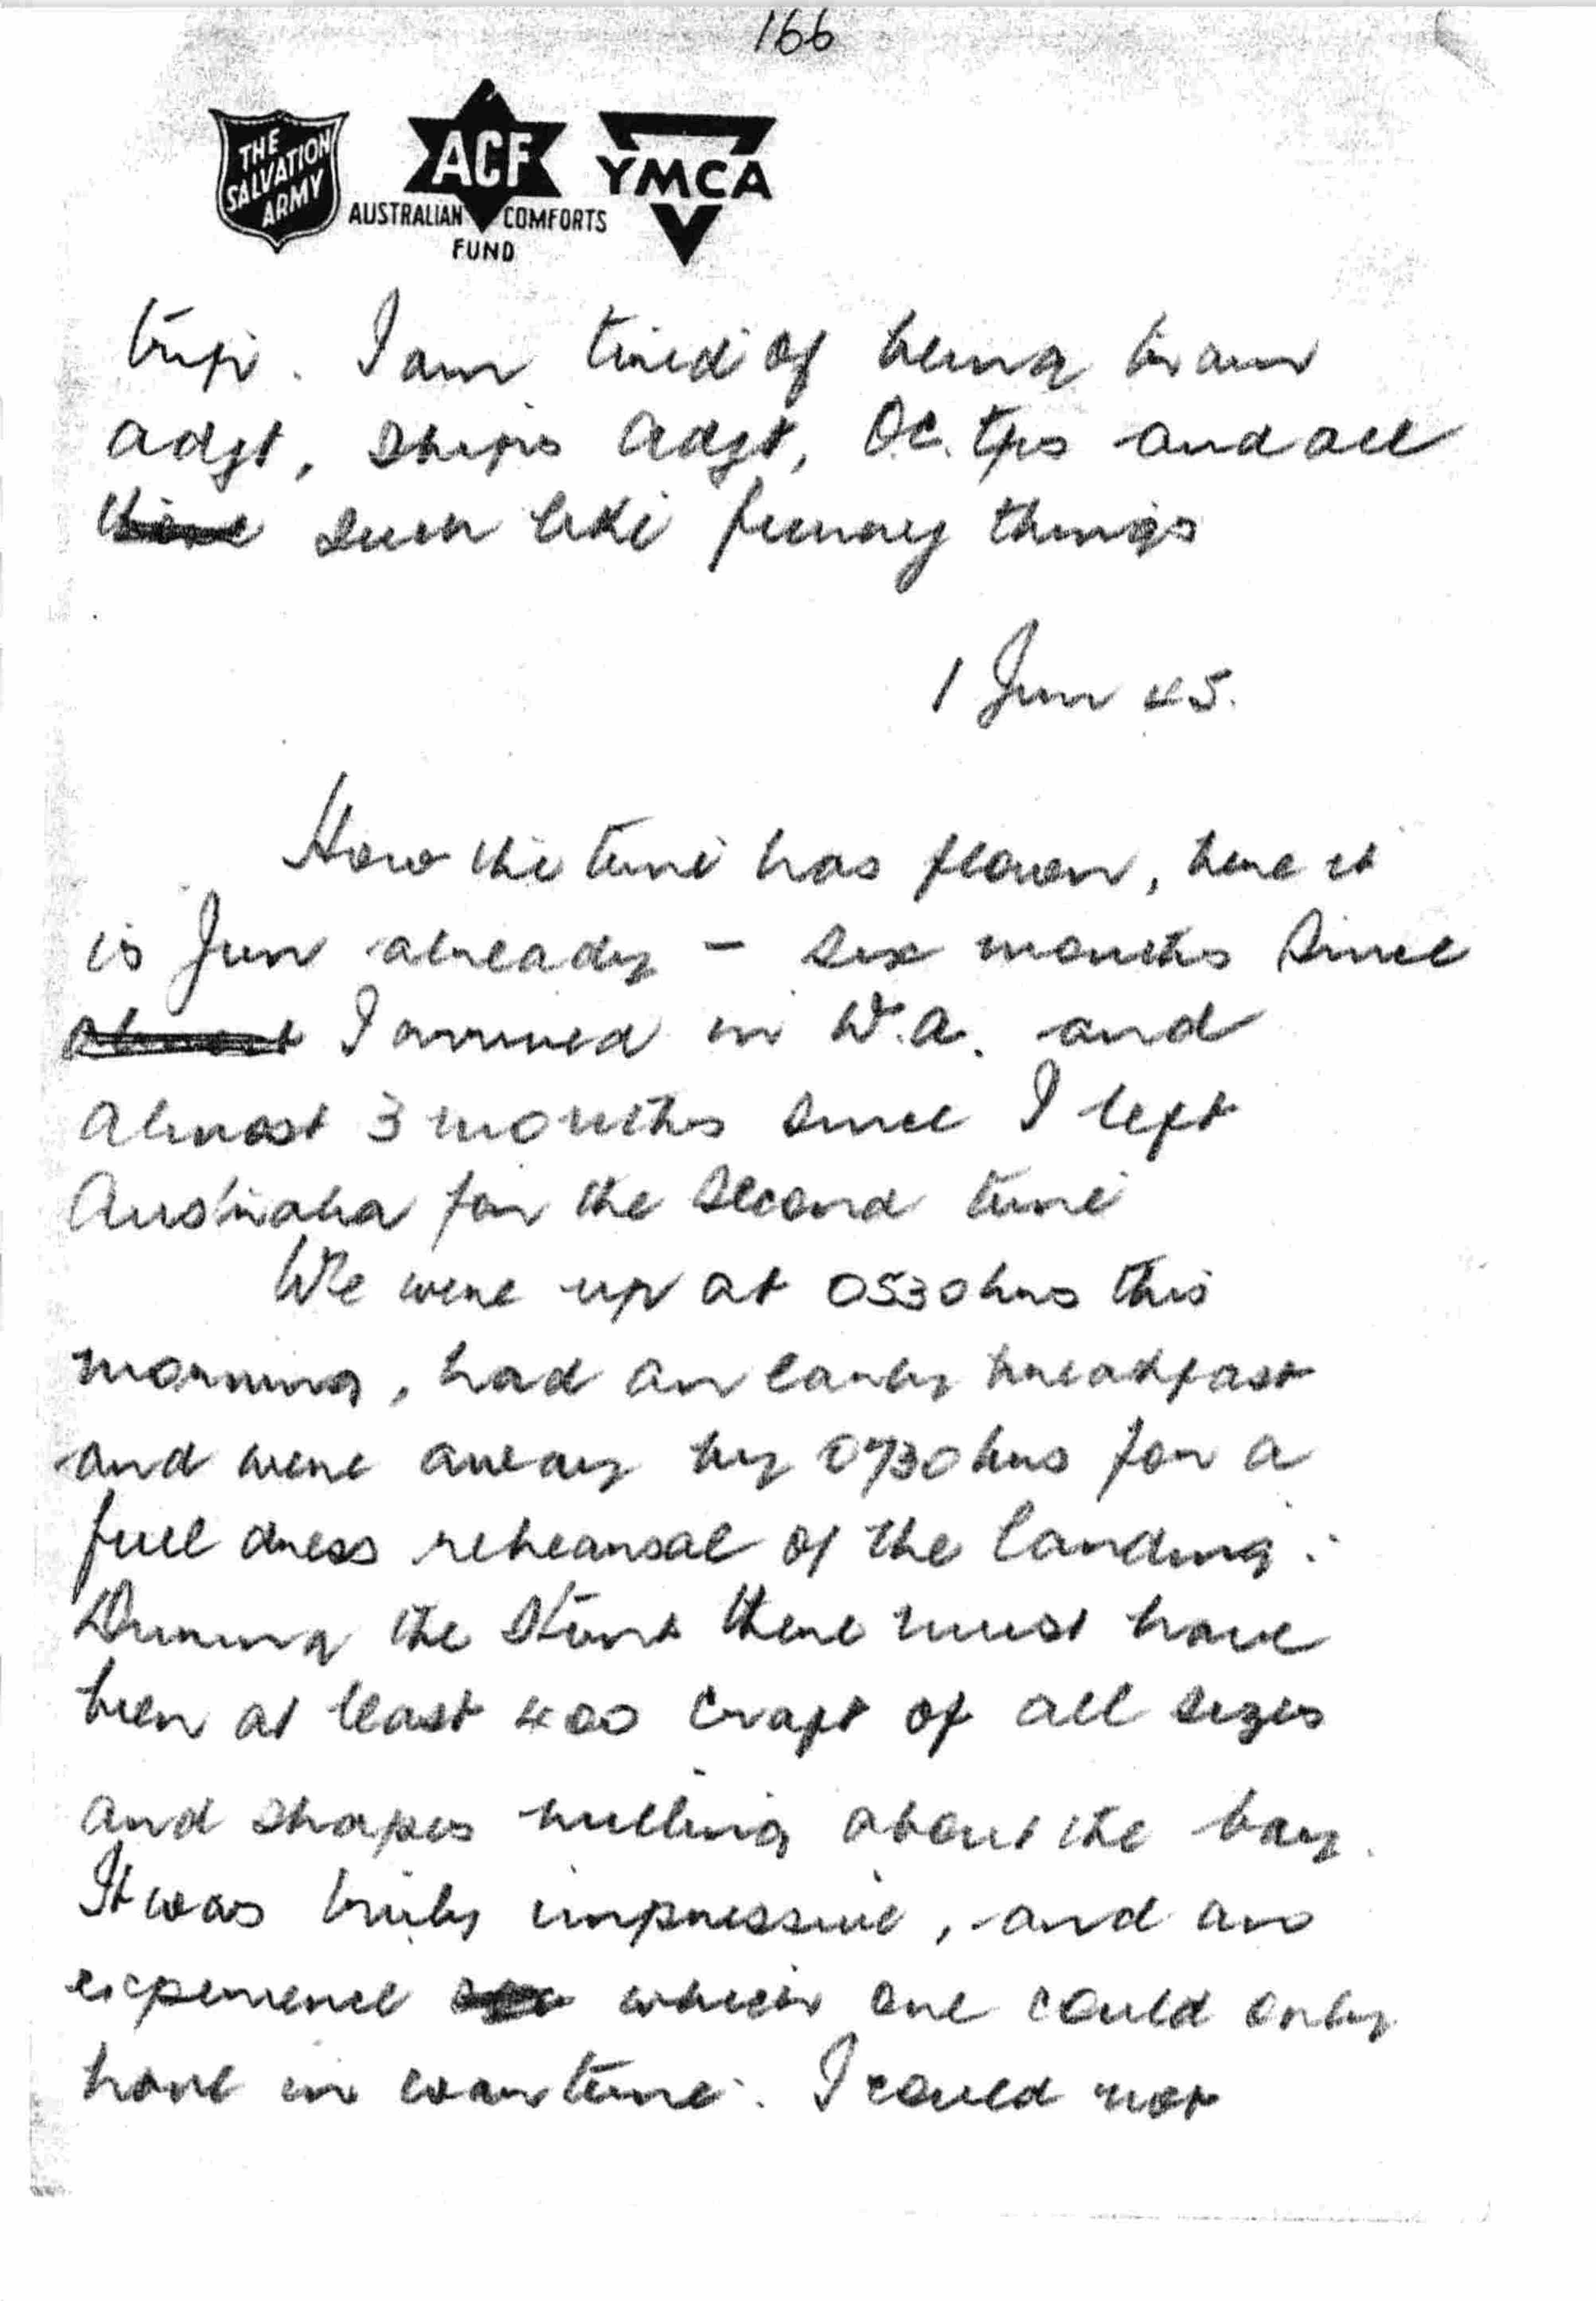 166
THE SALVATION ARMY
ACF
AUSTRALIAN COMFORTS
FUND
YMCA
trip. I am tired of being train
adgt, ships adgt, O.C. tps and all
such like funny things
1 Jun 45.
How the time has flown, here it
is Jun already - six months since
almost I arrived in W.A. and
almost 3 months since I left
Australia for the second time
We were up at 0530hrs this
morning, had an early breakfast
and were away by 0730hrs for a
full dress rehearsal of the landing.
During the stunt there must have
been at least 400 craft of all sizes
and shapes milling about the bay.
It was truly impressive, and an
experience which one could only
have in wartime. I could not